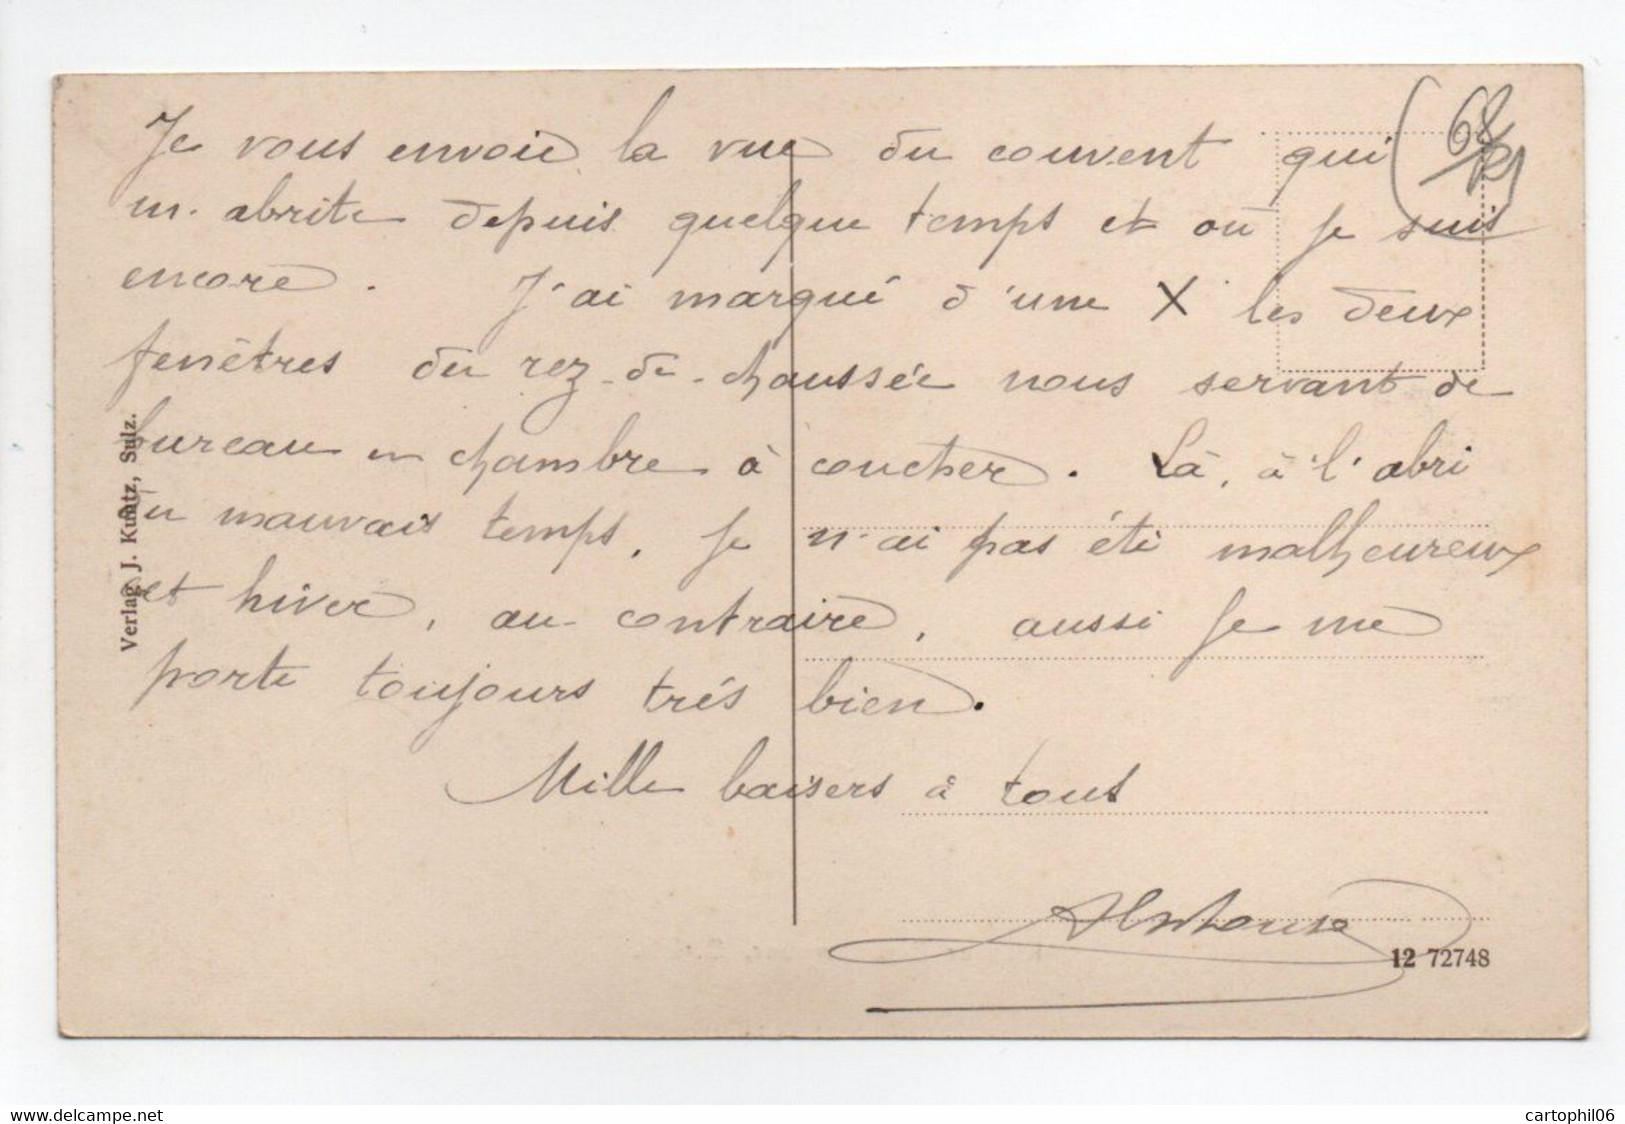 Je vous envoie la vue du couvent qui
m'abrite depuis quelque temps et où je suis
encore. J'ai marqué d'une X les deux
fenêtres du rez-de-chaussée nous servant de
bureau en chambre à coucher. Là, à l'abri
du mauvais temps, je n'ai pas été malheureux
et hiver, au contraire, aussi je me
porte toujours très bien.
Mille baisers à tous
Antoine
68
Verlag J. Kuntz, Sulz.
12 72748
delcampe.net
cartophil06